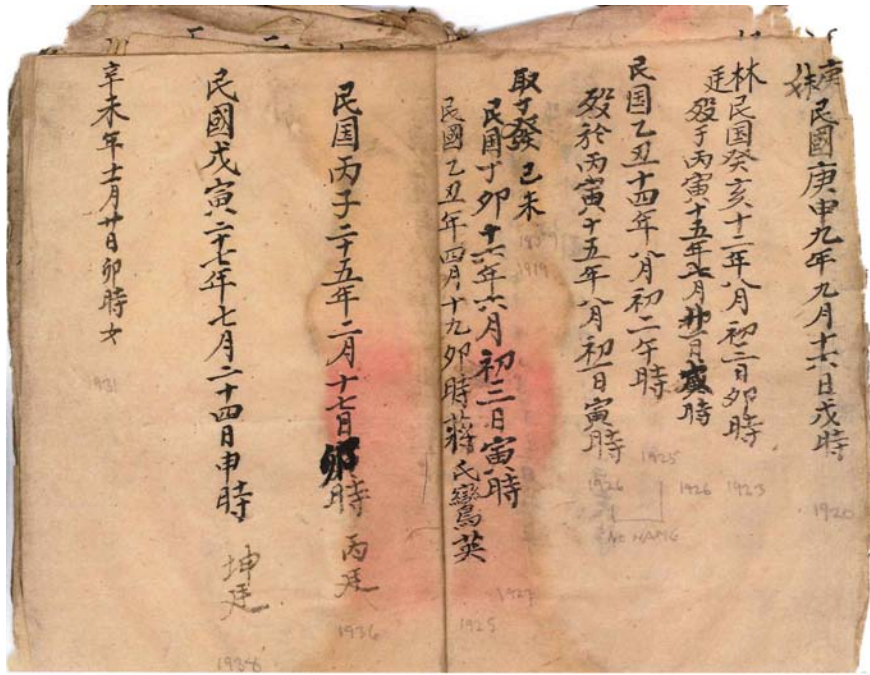 庚妹
民國庚申九年九月十六日戌時
1920
林廷
民国癸亥十二年八月初二日卯時
1923
歿于丙寅十五年七月廿一日歲時
1926
民国乙丑十四年八月初二午時
1925
歿於丙寅十五年八月初一日寅時
1926
NO NAME
取子發 己未
1919
民国丁卯十六年六月初三日寅時
1927
民國乙丑年四月十九卯時蔣氏鸞英
1925
民国丙子二十五年二月十七日卯時 丙廷
1936
民國戊寅二十七年七月二十四日申時 坤廷
1938
辛未年十二月廿日卯時女
1931